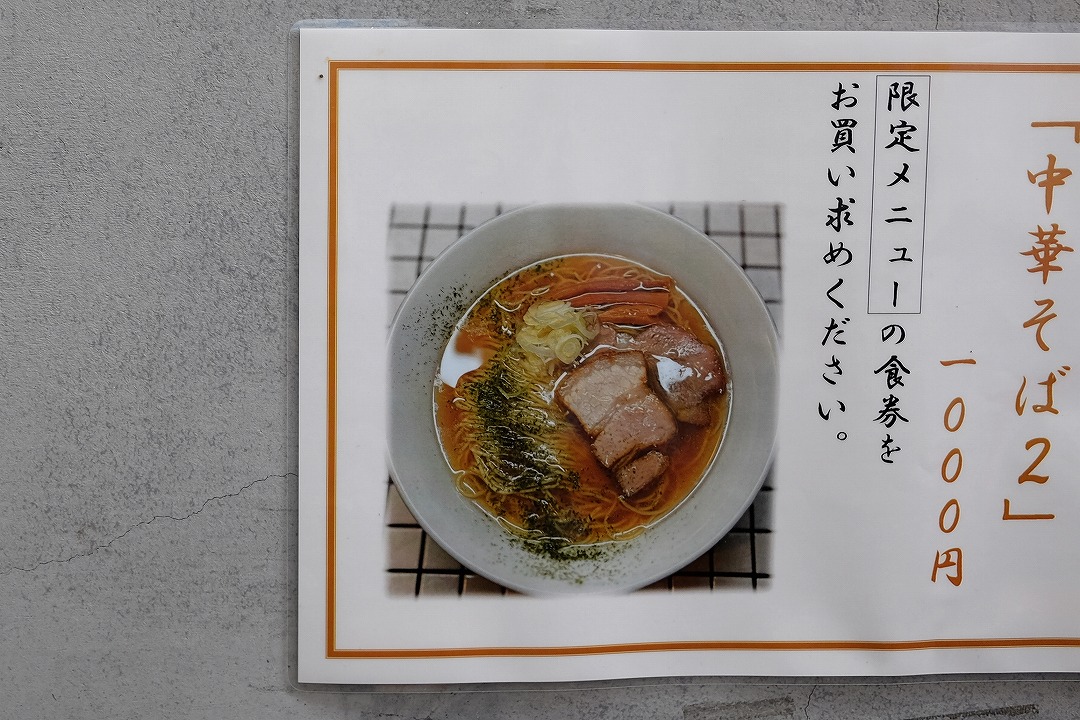 「中華そば2」
一000円
限定メニューの食券を
お買い求めください。